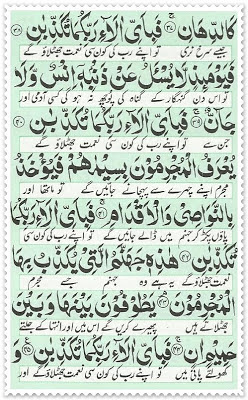 كَالدِّهَانِ ﴿۳۷﴾ فَبِاَيِّ اٰلَآءِ رَبِّكُمَا تُكَذِّبٰنِ ﴿۳۸﴾
جیسے سرخ نری تو اپنے رب کی کون سی نعمت جھٹلاؤ گے
فَيَوْمَئِذٍ لَّا يُسْـَٔلُ عَنْ ذَنْۢبِهٖۤ اِنْسٌ وَّلَا
تو اس دن گنہگار کے گناہ کی پوچھ نہ ہو گی کسی آدمی اور
جَآنٌّ ﴿۳۹﴾ فَبِاَيِّ اٰلَآءِ رَبِّكُمَا تُكَذِّبٰنِ ﴿۴۰﴾
جن سے تو اپنے رب کی کون سی نعمت جھٹلاؤ گے
يُعْرَفُ الْمُجْرِمُوْنَ بِسِيْمٰهُمْ فَيُؤْخَذُ
مجرم اپنے چہرے سے پہچانے جائیں گے تو ماتھا اور
بِالنَّوَاصِيْ وَالْاَقْدَامِ ﴿۴۱﴾ فَبِاَيِّ اٰلَآءِ رَبِّكُمَا
پاؤں پکڑ کر جہنم میں ڈالے جائیں گے تو اپنے رب کی کون سی
تُكَذِّبٰنِ ﴿۴۲﴾ هٰذِهٖ جَهَنَّمُ الَّتِيْ يُكَذِّبُ بِهَا
نعمت جھٹلاؤ گے یہ ہے وہ جہنم جسے مجرم
الْمُجْرِمُوْنَ ﴿۴۳﴾ يَطُوْفُوْنَ بَيْنَهَا وَبَيْنَ
جھٹلاتے ہیں پھیرے کریں گے اس میں اور انتہا کے جلتے
حَمِيْمٍ اٰنٍ ﴿۴۴﴾ فَبِاَيِّ اٰلَآءِ رَبِّكُمَا تُكَذِّبٰنِ ﴿۴۵﴾ وَ
کھولتے پانی میں تو اپنے رب کی کون سی نعمت جھٹلاؤ گے اور